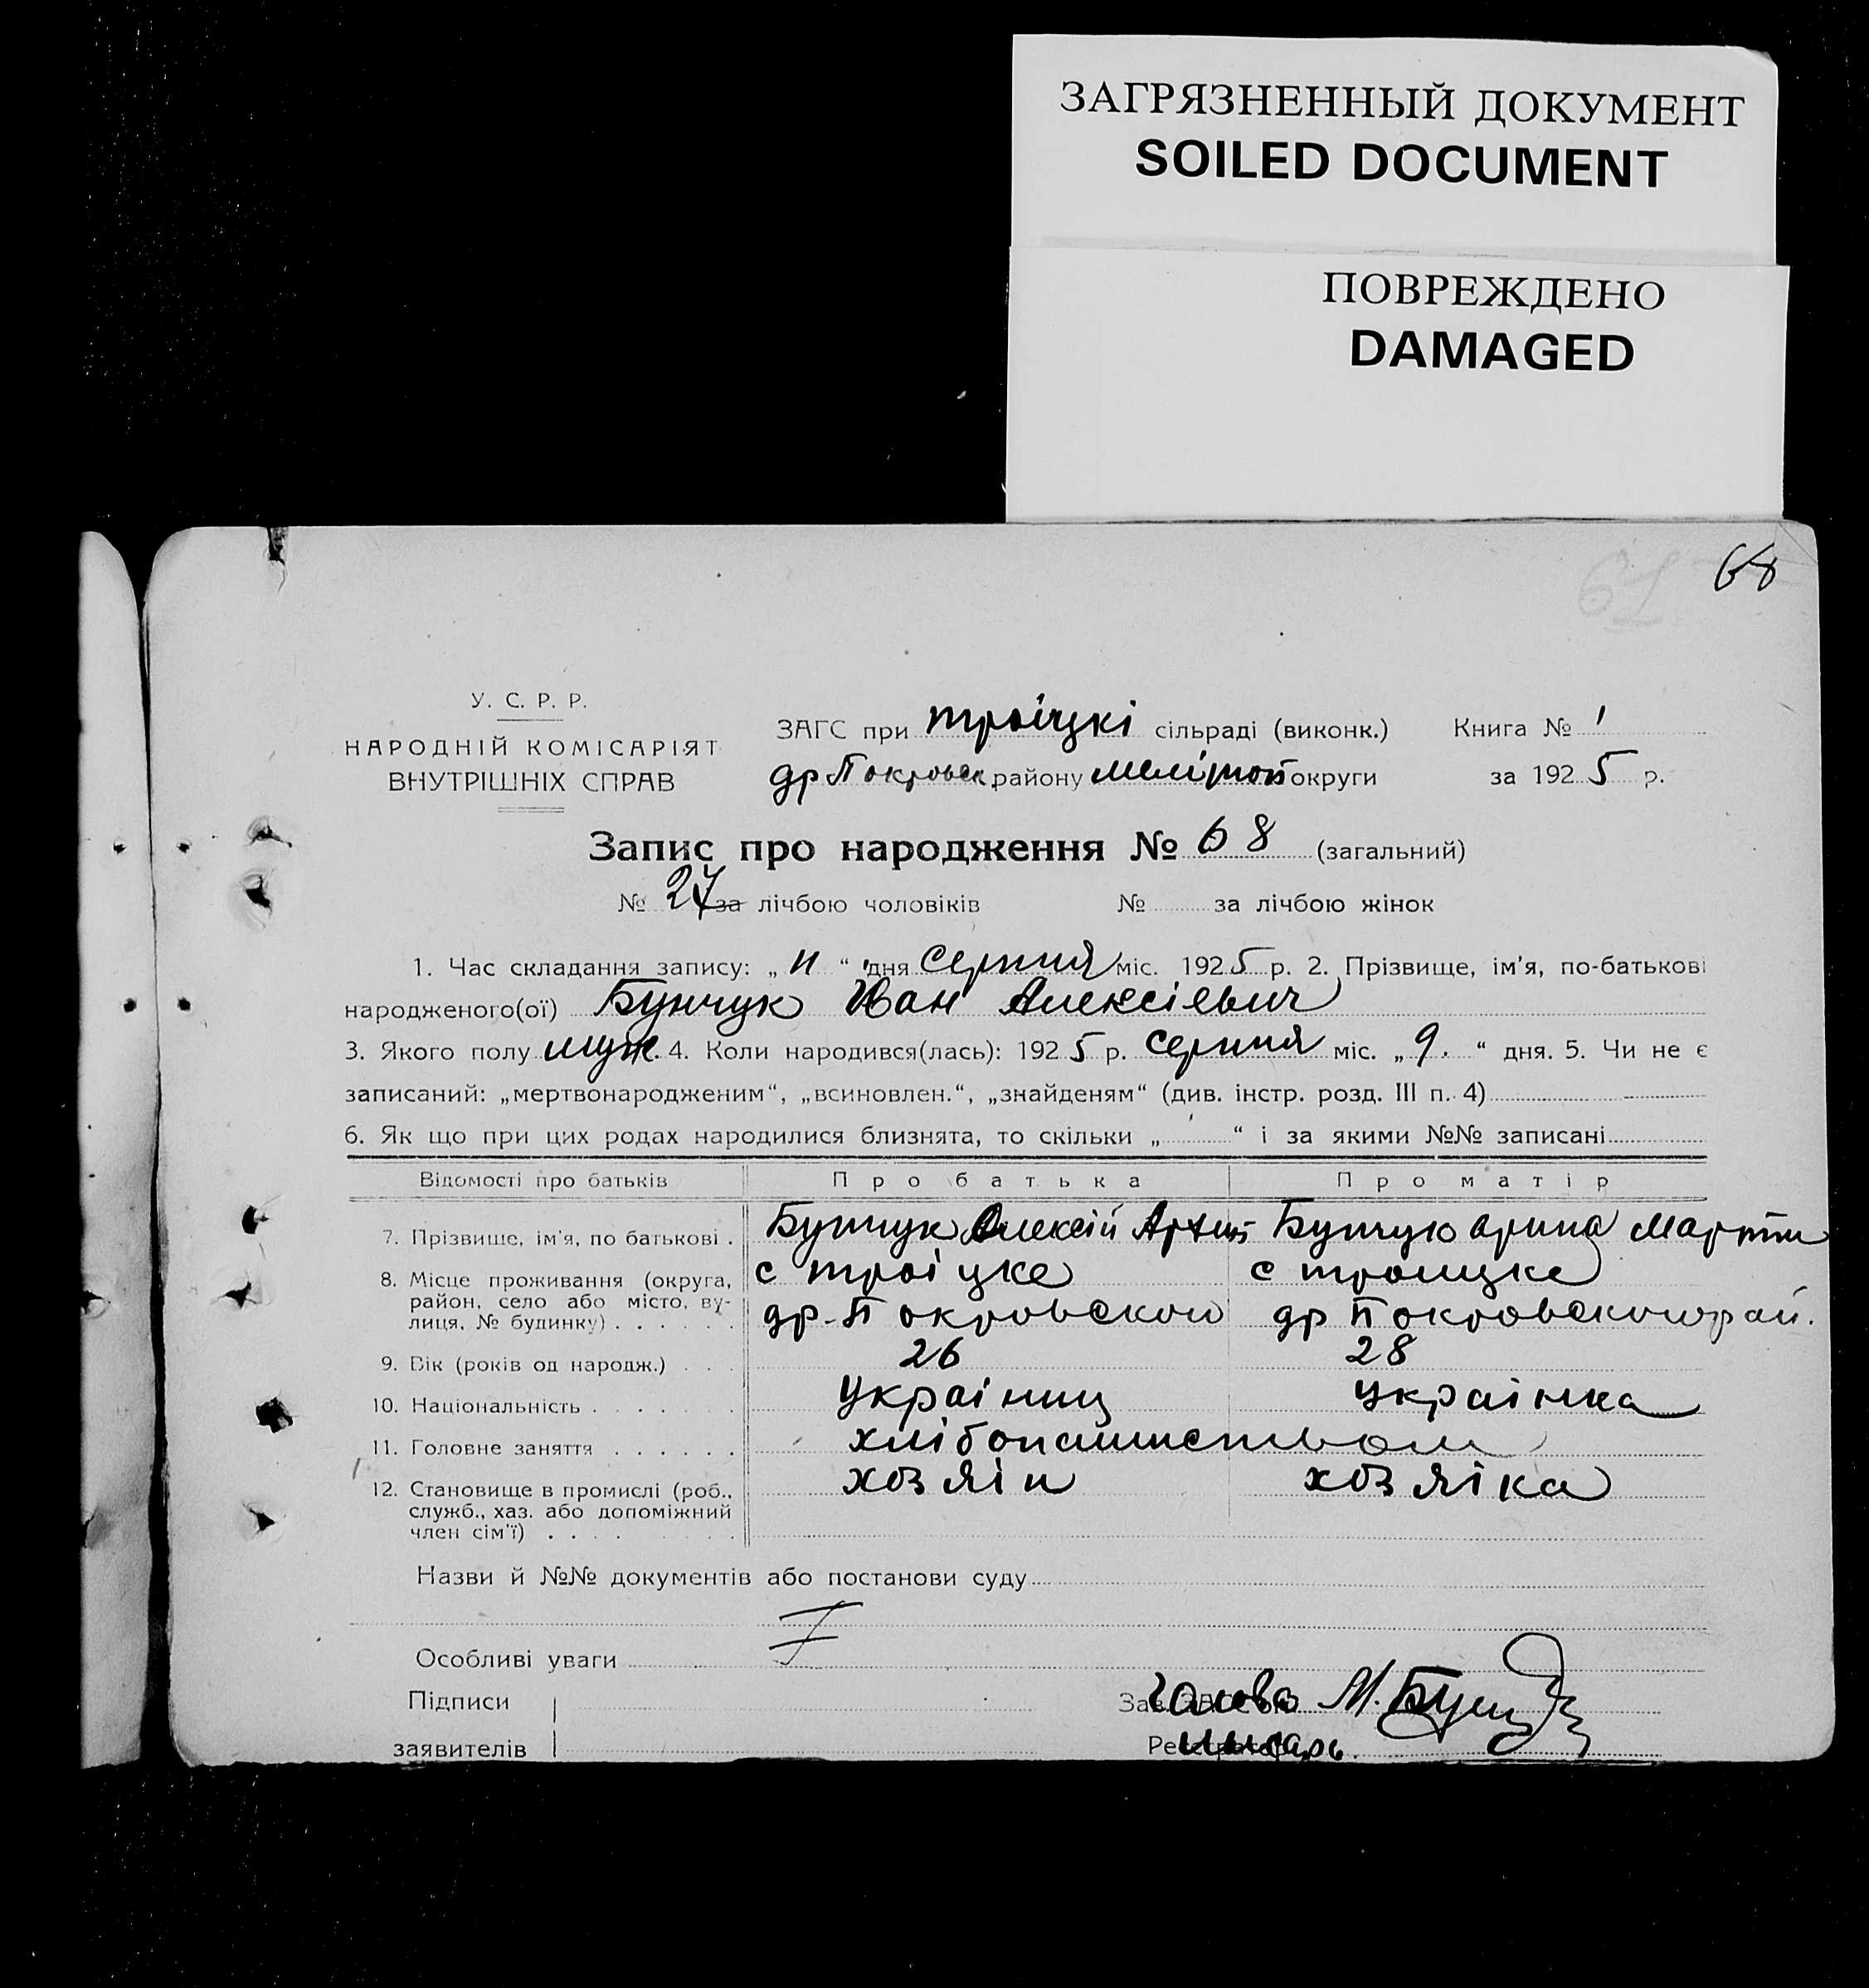 ЗАГРЯЗНЕННЫЙ ДОКУМЕНТ
SOILED DOCUMENT
ПОВРЕЖДЕНО
DAMAGED
61 68
У. С. Р. Р.
НАРОДНІЙ КОМІСАРІЯТ
ВНУТРІШНІХ СПРАВ
ЗАГС при троіцкі сільраді (виконк.) Книга № 1
др Покровск району меліто округи за 1925 р.
Запис про народження № 68 (загальний)
№ 27 за лічбою чоловіків № за лічбою жінок
1. Час складання запису: „11“ дня серпня міс. 1925 р. 2. Прізвище, ім'я, по-батькові
народженого(ої) Бунчук Іван Алексіевич
3. Якого полу муж. 4. Коли народився(лась): 1925 р. серпня міс. „9.“ дня. 5. Чи не є
записаний: „мертвонародженим“, „всиновлен.“, „знайденям“ (див. інстр. розд. III п. 4)
6. Як що при цих родах народилися близнята, то скільки „ “ і за якими №№ записані
Відомості про батьків Про батька Про матір
7. Прізвище, ім'я, по батькові . Бунчук Алексій Артем Бунчук арина Марти
8. Місце проживання (округа, район, село або місто, вулиця, № будинку) . . . . . . с троіцке с троицке
др-Покровского др Покровского рай.
9. Вік (років од народж.) . . . 26 28
10. Національність . . . . . украінец украінка
11. Головне заняття . . . . . . хлібопашеством
12. Становище в промислі (роб., служб., хаз. або допоміжний член сім'ї) . . . . . хозяін хозяіка
Назви й №№ документів або постанови суду
Особливі уваги
Підписи Зав. голова М.
заявителів писарь